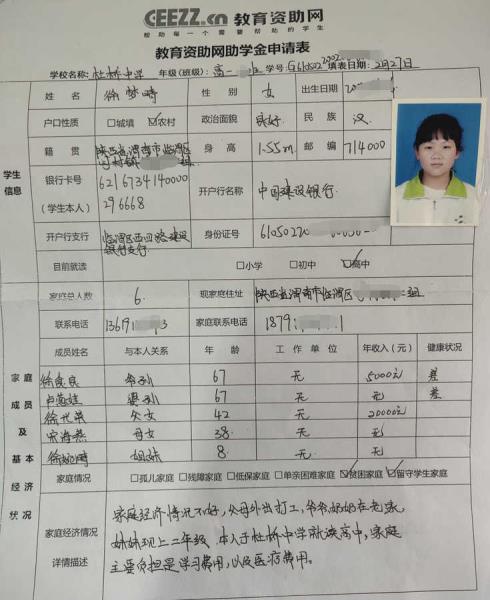 CEEZZ.cn 教育资助网
帮助每一个需要帮助的学生
教育资助网助学金申请表
学校名称: 杜桥中学 年级(班级): 高一 学号: G610502 填表日期: 2月27日
姓名 徐梦晴 性别 女 出生日期
户口性质 □城填 ☑农村 政治面貌 良好 民族 汉
籍贯 陕西省渭南市临渭区 身高 1.55m 邮编 714000
学生信息
银行卡号 6216734140000
(学生本人) 296668
开户行名称 中国建设银行
开户行支行 临渭区西四路建设银行支行 身份证号 6105022
目前就读 □小学 □初中 ☑高中
家庭总人数 6. 现家庭住址 陕西省渭南市临渭区 二组
联系电话 13619 3 家庭联系电话 1879 1
成员姓名 与本人关系 年龄 工作单位 年收入(元) 健康状况
家庭成员及基本经济状况
徐良民 爷孙 67 无 5000元 差
婆孙 67 无 无 差
徐 父女 42 无 20000元
宋海燕 母女 38. 无 无
徐 晴 姐妹 8. 无 无
家庭情况 □孤儿家庭 □残障家庭 □低保家庭 □单亲困难家庭 ☑贫困家庭 ☑留守学生家庭
家庭经济情况详情描述
家庭经济情况不好,父母外出打工,爷爷奶奶在老家,
妹妹现上二年级,本人于杜桥中学就读高中,家庭
主要负担是学习费用,以及医疗费用。